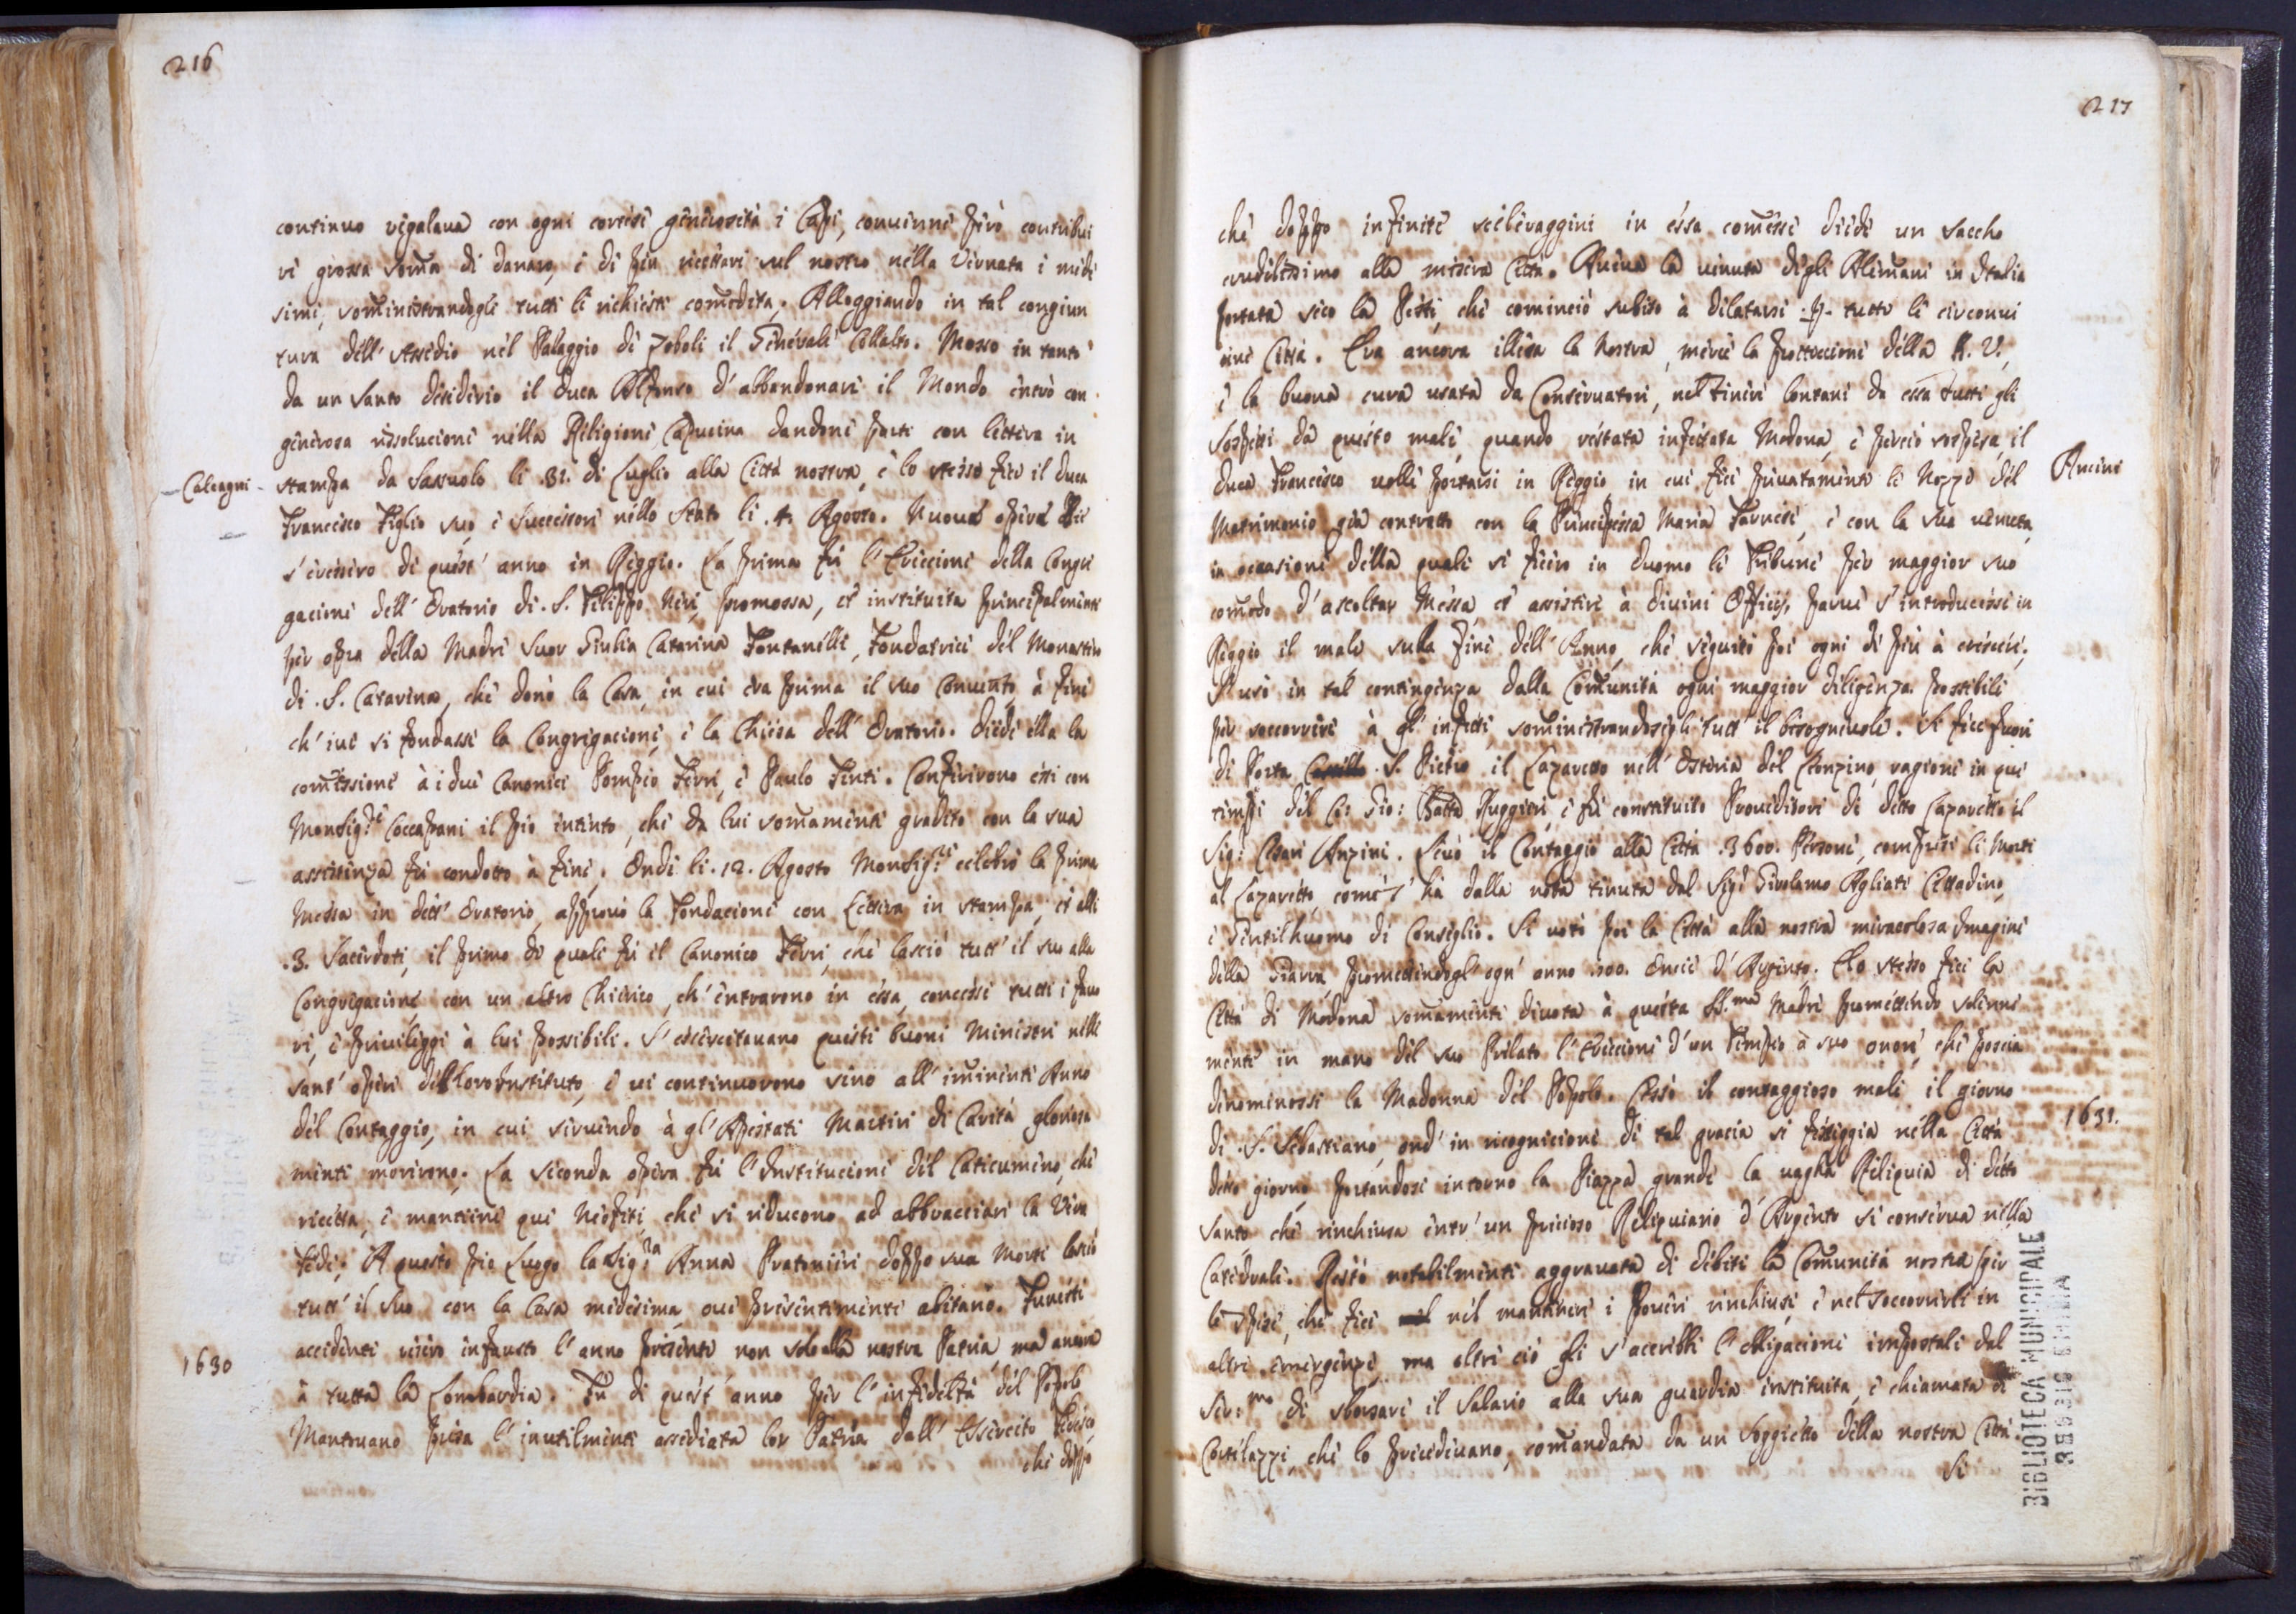 216
continuo regalaua con ogni cortese generosità i Capi, conuenne però contribui
re grossa som̃a di danaro, e di più ricettare sul nostro nella Vernata i mede
simi, som̃inistrandogli tutte le richieste com̃odità. Alloggiando in tal congiun
tura dell' Assedio nel Palaggio di Zoboli il Generale Collalto. Mosso in tanto
da un Santo desiderio il Duca Alfonso d' abbandonare il Mondo entrò con
generosa rissolucione nella Religione Capucina dandone parte con lettera in
Calcagni
stampa da Sassuolo li .31. di Luglio alla Città nostra, e lo stesso fece il Duca
Francesco Figlio suo, e Successore nello Stato li .4. Agosto. Nuoue opere
s' eressero di quest' anno in Reggio. La prima fù l' Ereccione della Congre
gacione dell' Oratorio di .S. Filippo Neri, promossa, et instituita principalmente
per opra della Madre Suor Giulia Catarina Fontanelli, Fondatrice del Monastero
di .S. Catarina, che donò la Casa, in cui era prima il suo Conuento, à fine
ch' iui si fondasse la Congregacione, e la Chiesa dell' Oratorio. Diede ella la
com̃issione à i due Canonici Pompeo Ferri, e Paulo Tinti. Conferirono essi con
Monsig.re Coccapani il pio intento, che da lui som̃amente gradito con la sua
assistenza fù condotto à fine. Onde li .12. Agosto Monsig.re celebrò la prima
Messa in dett' Oratorio, approuò la Fondacione con Lettera in stampa, et alli
.3. Sacerdoti, il primo de quali fù il Canonico Ferri, che lasciò tutt' il suo alla
Congregacione con un altro Chierico, ch' entrarono in essa, concesse tutti i fauo
ri, e priuileggi à lui possibili. S' essercitauano questi buoni Ministri nelle
sant' opere del loro Instituto, e ui continuorono sino all' im̃inente Anno
del Contaggio, in cui seruendo à gl' Apestati Martiri di Carità gloriosa
mente morirono. La seconda opera fù l' Institucione del Catecumeno, che
ricetta, e mantiene que Neofiti, che si riducono ad abbracciare la Vera
fede. A questo pio Luogo la Sig.ra Anna Pratonieri doppo sua Morte lasciò
tutt' il suo con la Casa medesima, oue presentemente abitano. Funesti
accidenti resero infausto l' anno presente non solo alla nostra Patria, ma ancora
1630
à tutta la Lombardia. Fù di quest' anno per l' infedeltà del Popolo
Mantouano presa l' inutilmente assediata lor Patria dall' Essercito Tedesco,
che doppo
217
che doppo infinite sceleraggini in essa com̃esse diede un saccho
crudelissimo alla misera Città. Aueua la uenuta degli Alemani in Italia
portata seco la Peste, che cominciò subito à dilatarsi p. tutte le circonui
cine Città. Era ancora illesa la Nostra, mercè la protteccione della B. V.,
e la buona cura usata da Conseruatori, nel tinere lontani da essa tutti gli
Sospetti da questo male, quando restata infettata Modona, e perciò sospesa, il
Duca Francesco uolle portarsi in Reggio in cui fece priuatamente le Nozze del
Ancini
Matrimonio già contratto con la Principessa Maria Farnese, e con la sua uenuta,
in occasione della quale si fecero in Duomo le Tribune per maggior suo
com̃odo d' ascoltar Messa, et assistere à diuini Officij, parue s' introducesse in
Reggio il male sulla fine dell' Anno, che seguitò poi ogni dì più à crescere.
S' usò in tal contingenza dalla Com̃unità ogni maggior diligenza possibile
per soccorrere à gl' infetti, som̃inistrandosegli tutt' il bisogneuole. Si fece fuori
di Porta S. Pietro il Lazaretto nell' Osteria del Leonzino, ragione in que
tempi del Co: Gio: Batta Ruggieri, e fù constituito Proueditore di detto Lazaretto il
Sig: Cesare Anzini. Leuò il Contaggio alla Città .3600. Persone, comprese li Morti
al Lazaretto, come s' hà dalla nota tenuta dal Sig.r Girolamo Agliati Cittadino,
e Gentilhuomo di Consiglio. Si uotò poi la Città alla nostra miracolosa Imagine
della Giarra, promettendogl' ogn' anno .100. Oncie d' Argento. E lo stesso fece la
Città di Modona som̃amente diuota à questa SS.ma Madre promettendo solenne
mente in mano del suo Prelato l' Ereccione d' un Tempio à suo onore, che poscia
denominossi la Madonna del Popolo. Cessò il contaggioso male il giorno
1631.
di .S. Sebastiano, ond' in ricognicione di tal gracia si festeggia nella Città
detto giorno, portandosi intorno la Piazza grande la uagha Reliquia di detto
Santo, che rinchiusa entr' un pricioso Reliquiario d' Argento si conserua nella
Catedrale. Restò notabilmente aggrauata di debiti la Com̃unità nostra per
le spese, che fece nel mantinere i Poueri rinchiusi, e nel soccorrerli in
altre emergenze, ma oltre ciò gli s' acerebbe l' obligacione impostale dal
Ser:mo di sborsare il Salario alla sua guardia instituita, e chiamata di
Corteleazzi, che lo precedeuano, com̃andata da un Soggietto della nostra Città.
Si
BIBLIOTECA MUNICIPALE
REGGIO EMILIA